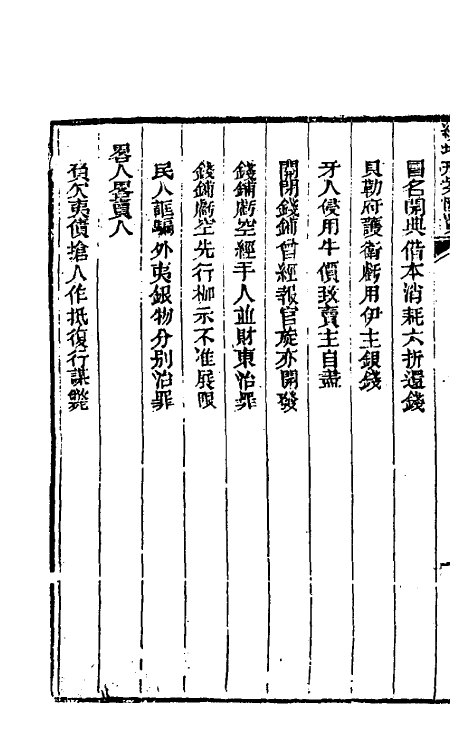 冒名開典借本消耗六折還錢
貝勒府護衛虧用伊主銀錢
牙人侵用牛價致賣主自盡
開閉錢鋪曾經報官旋亦開發
錢鋪虧空經手人並財東治罪
錢鋪虧空先行枷示不准展限
民人誆騙外夷銀物分別治罪
畧人畧賣人
負欠夷債搶人作抵復行謀斃